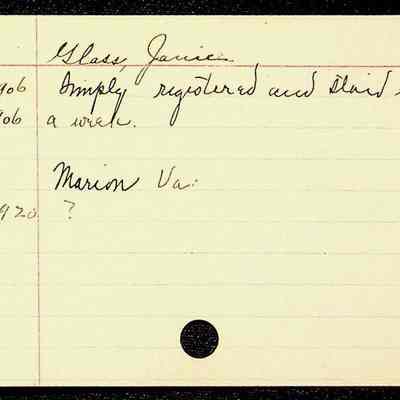 Glass, Janie
906 Simply registered and staid
906 a week.
Marion Va.
920 ?